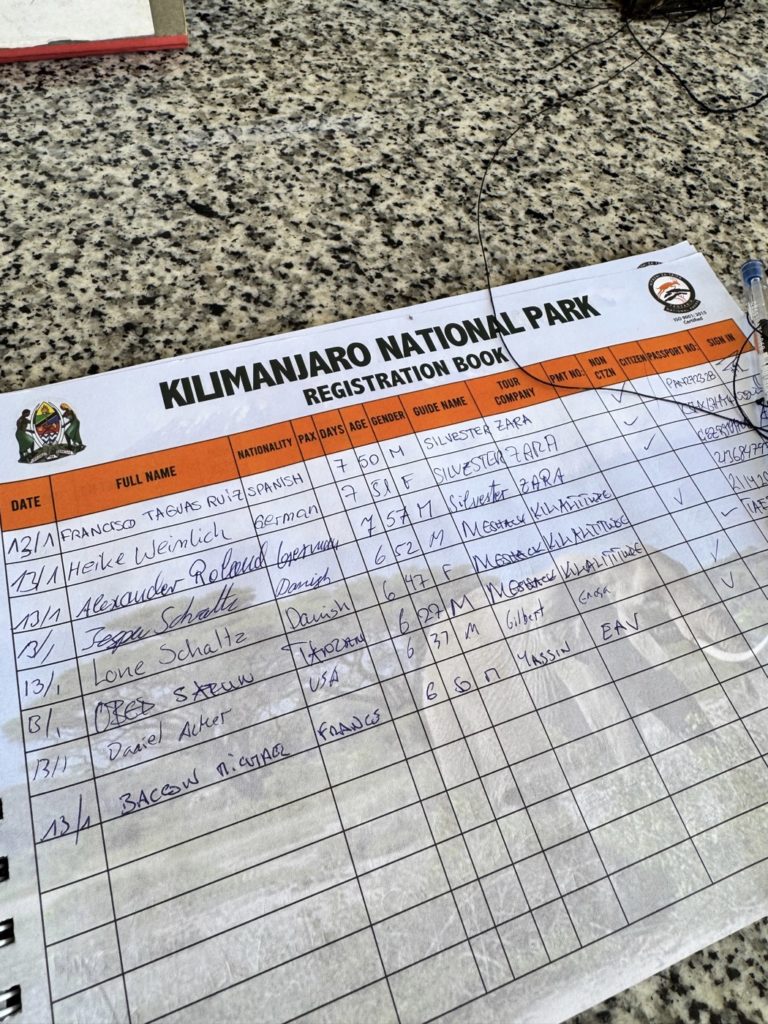 KILIMANJARO NATIONAL PARK
REGISTRATION BOOK
ISO 9001: 2015 Certified
DATE FULL NAME NATIONALITY PAX DAYS AGE GENDER GUIDE NAME TOUR COMPANY PMT NO: NON CTZN CITIZEN PASSPORT NO: SIGN IN
13/1 FRANCISCO TAGUAS RUIZ SPANISH 7 50 M SILVESTER ZARA ✓
13/1 Heike Weinlich German 7 51 F SILVESTER ZARA ✓
13/1 Alexander Roland German 7 57 M Silvester ZARA ✓
13/1 Schaltz Danish 6 52 M MESHACK KILIALTITUDE
13/1 Lone Schaltz Danish 6 47 F MESHACK KILIALTITUDE ✓
13/1 OBED 6 27 M MESHACK KILIALTITUDE ✓
13/1 Daniel Acker USA 6 37 M Gilbert ✓
13/1 FRANCE 6 50 M YASSIN EAV ✓